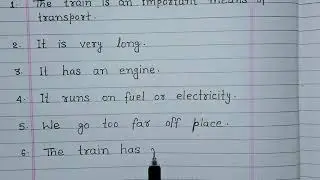 1. The train is an important means of
transport.
2. It is very long.
3. It has an engine.
4. It runs on fuel or electricity.
5. We go too far off place.
6. The train has